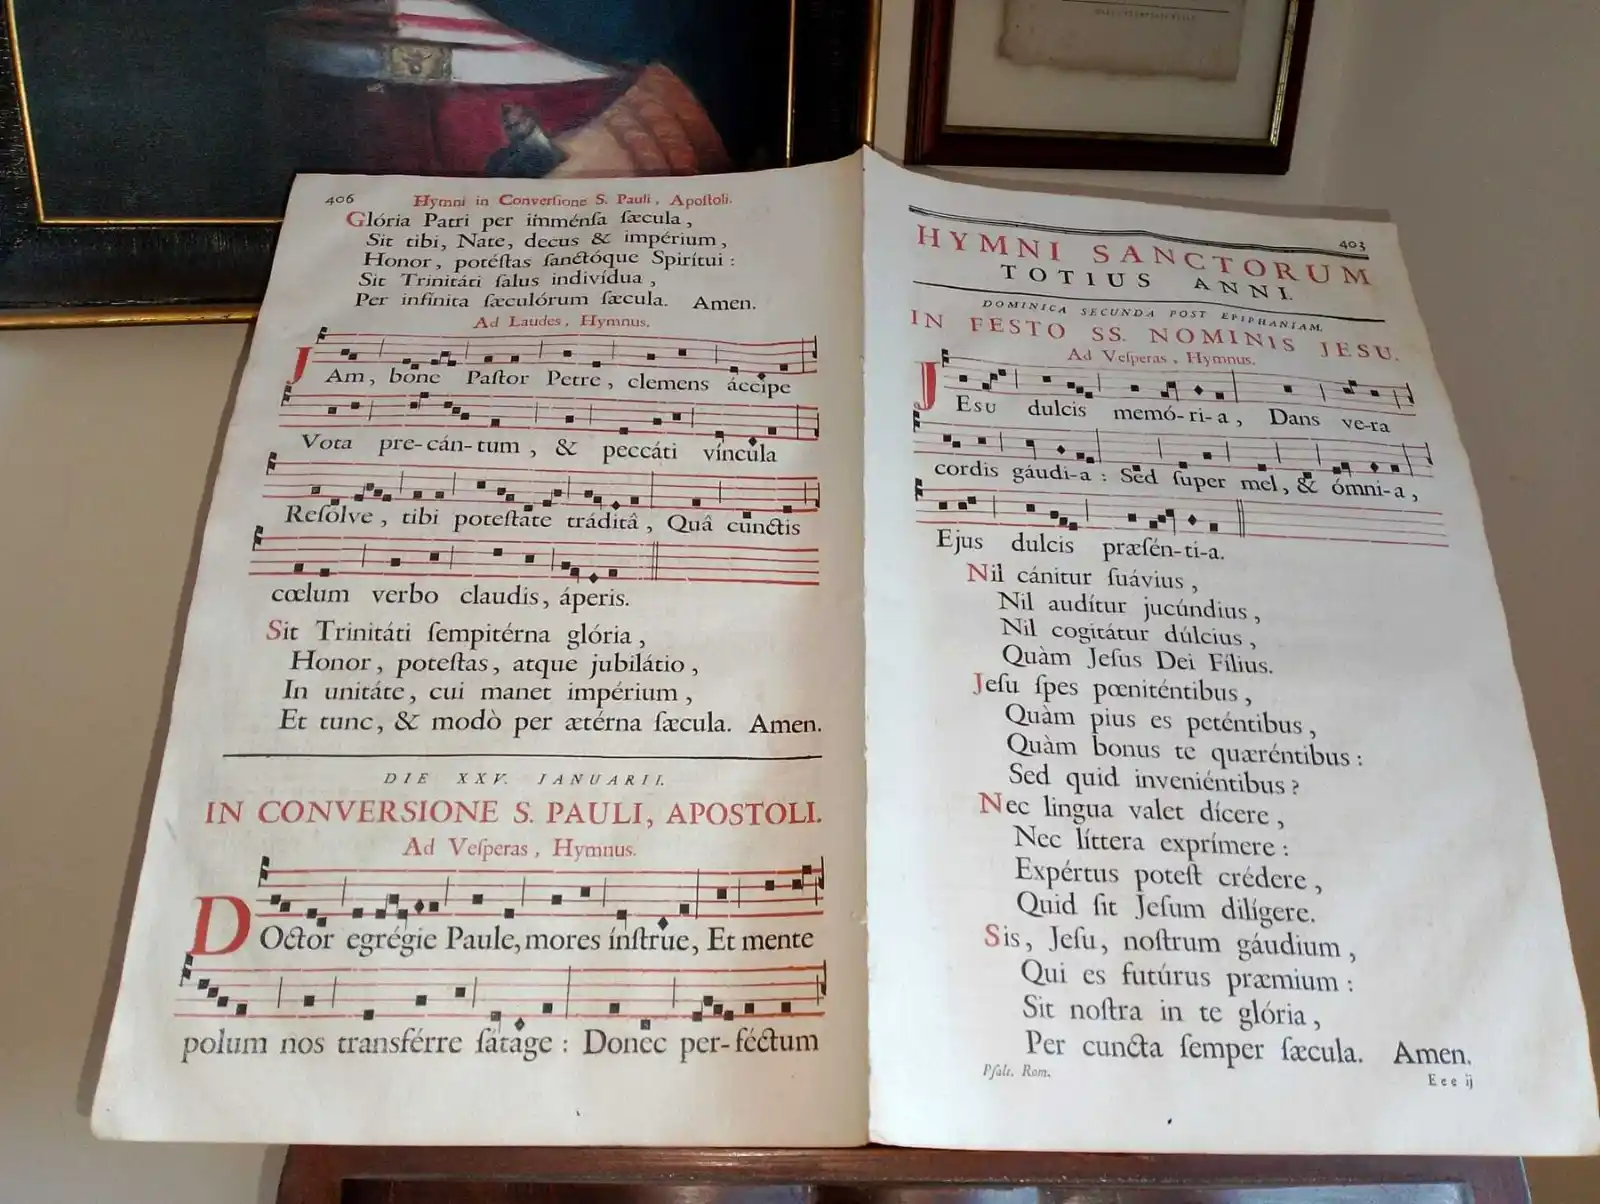 406
Hymni in Converſione S. Pauli, Apoſtoli.
Glória Patri per imménſa ſæcula,
Sit tibi, Nate, decus & impérium,
Honor, potéſtas ſanctóque Spirítui :
Sit Trinitáti ſalus indivídua,
Per infinita ſæculórum ſæcula. Amen.
Ad Laudes, Hymnus.
JAm, bone Paſtor Petre, clemens áccipe
Vota pre-cán-tum, & peccáti víncula
Reſolve, tibi poteſtate tráditâ, Quâ cunctis
cœlum verbo claudis, áperis.
Sit Trinitáti ſempitérna glória,
Honor, poteſtas, atque jubilátio,
In unitáte, cui manet impérium,
Et tunc, & modò per ætérna ſæcula. Amen.
DIE XXV. IANUARII.
IN CONVERSIONE S. PAULI, APOSTOLI.
Ad Veſperas, Hymnus.
DOctor egrégie Paule, mores ínſtrue, Et mente
polum nos transférre ſátage : Donec per-féctum
403
HYMNI SANCTORUM
TOTIUS ANNI.
DOMINICA SECUNDA POST EPIPHANIAM.
IN FESTO SS. NOMINIS JESU.
Ad Veſperas, Hymnus.
JEsu dulcis memó-ri-a, Dans ve-ra
cordis gáudi-a : Sed ſuper mel, & ómni-a,
Ejus dulcis præſén-ti-a.
Nil cánitur ſuávius,
Nil audítur jucúndius,
Nil cogitátur dúlcius,
Quàm Jeſus Dei Fílius.
Jeſu ſpes pœniténtibus,
Quàm pius es peténtibus,
Quàm bonus te quæréntibus :
Sed quid inveniéntibus ?
Nec lingua valet dícere,
Nec líttera exprímere :
Expértus poteſt crédere,
Quid ſit Jeſum dilígere.
Sis, Jeſu, noſtrum gáudium,
Qui es futúrus præmium :
Sit noſtra in te glória,
Per cuncta ſemper ſæcula. Amen.
Pſalt. Rom.
Eee ij